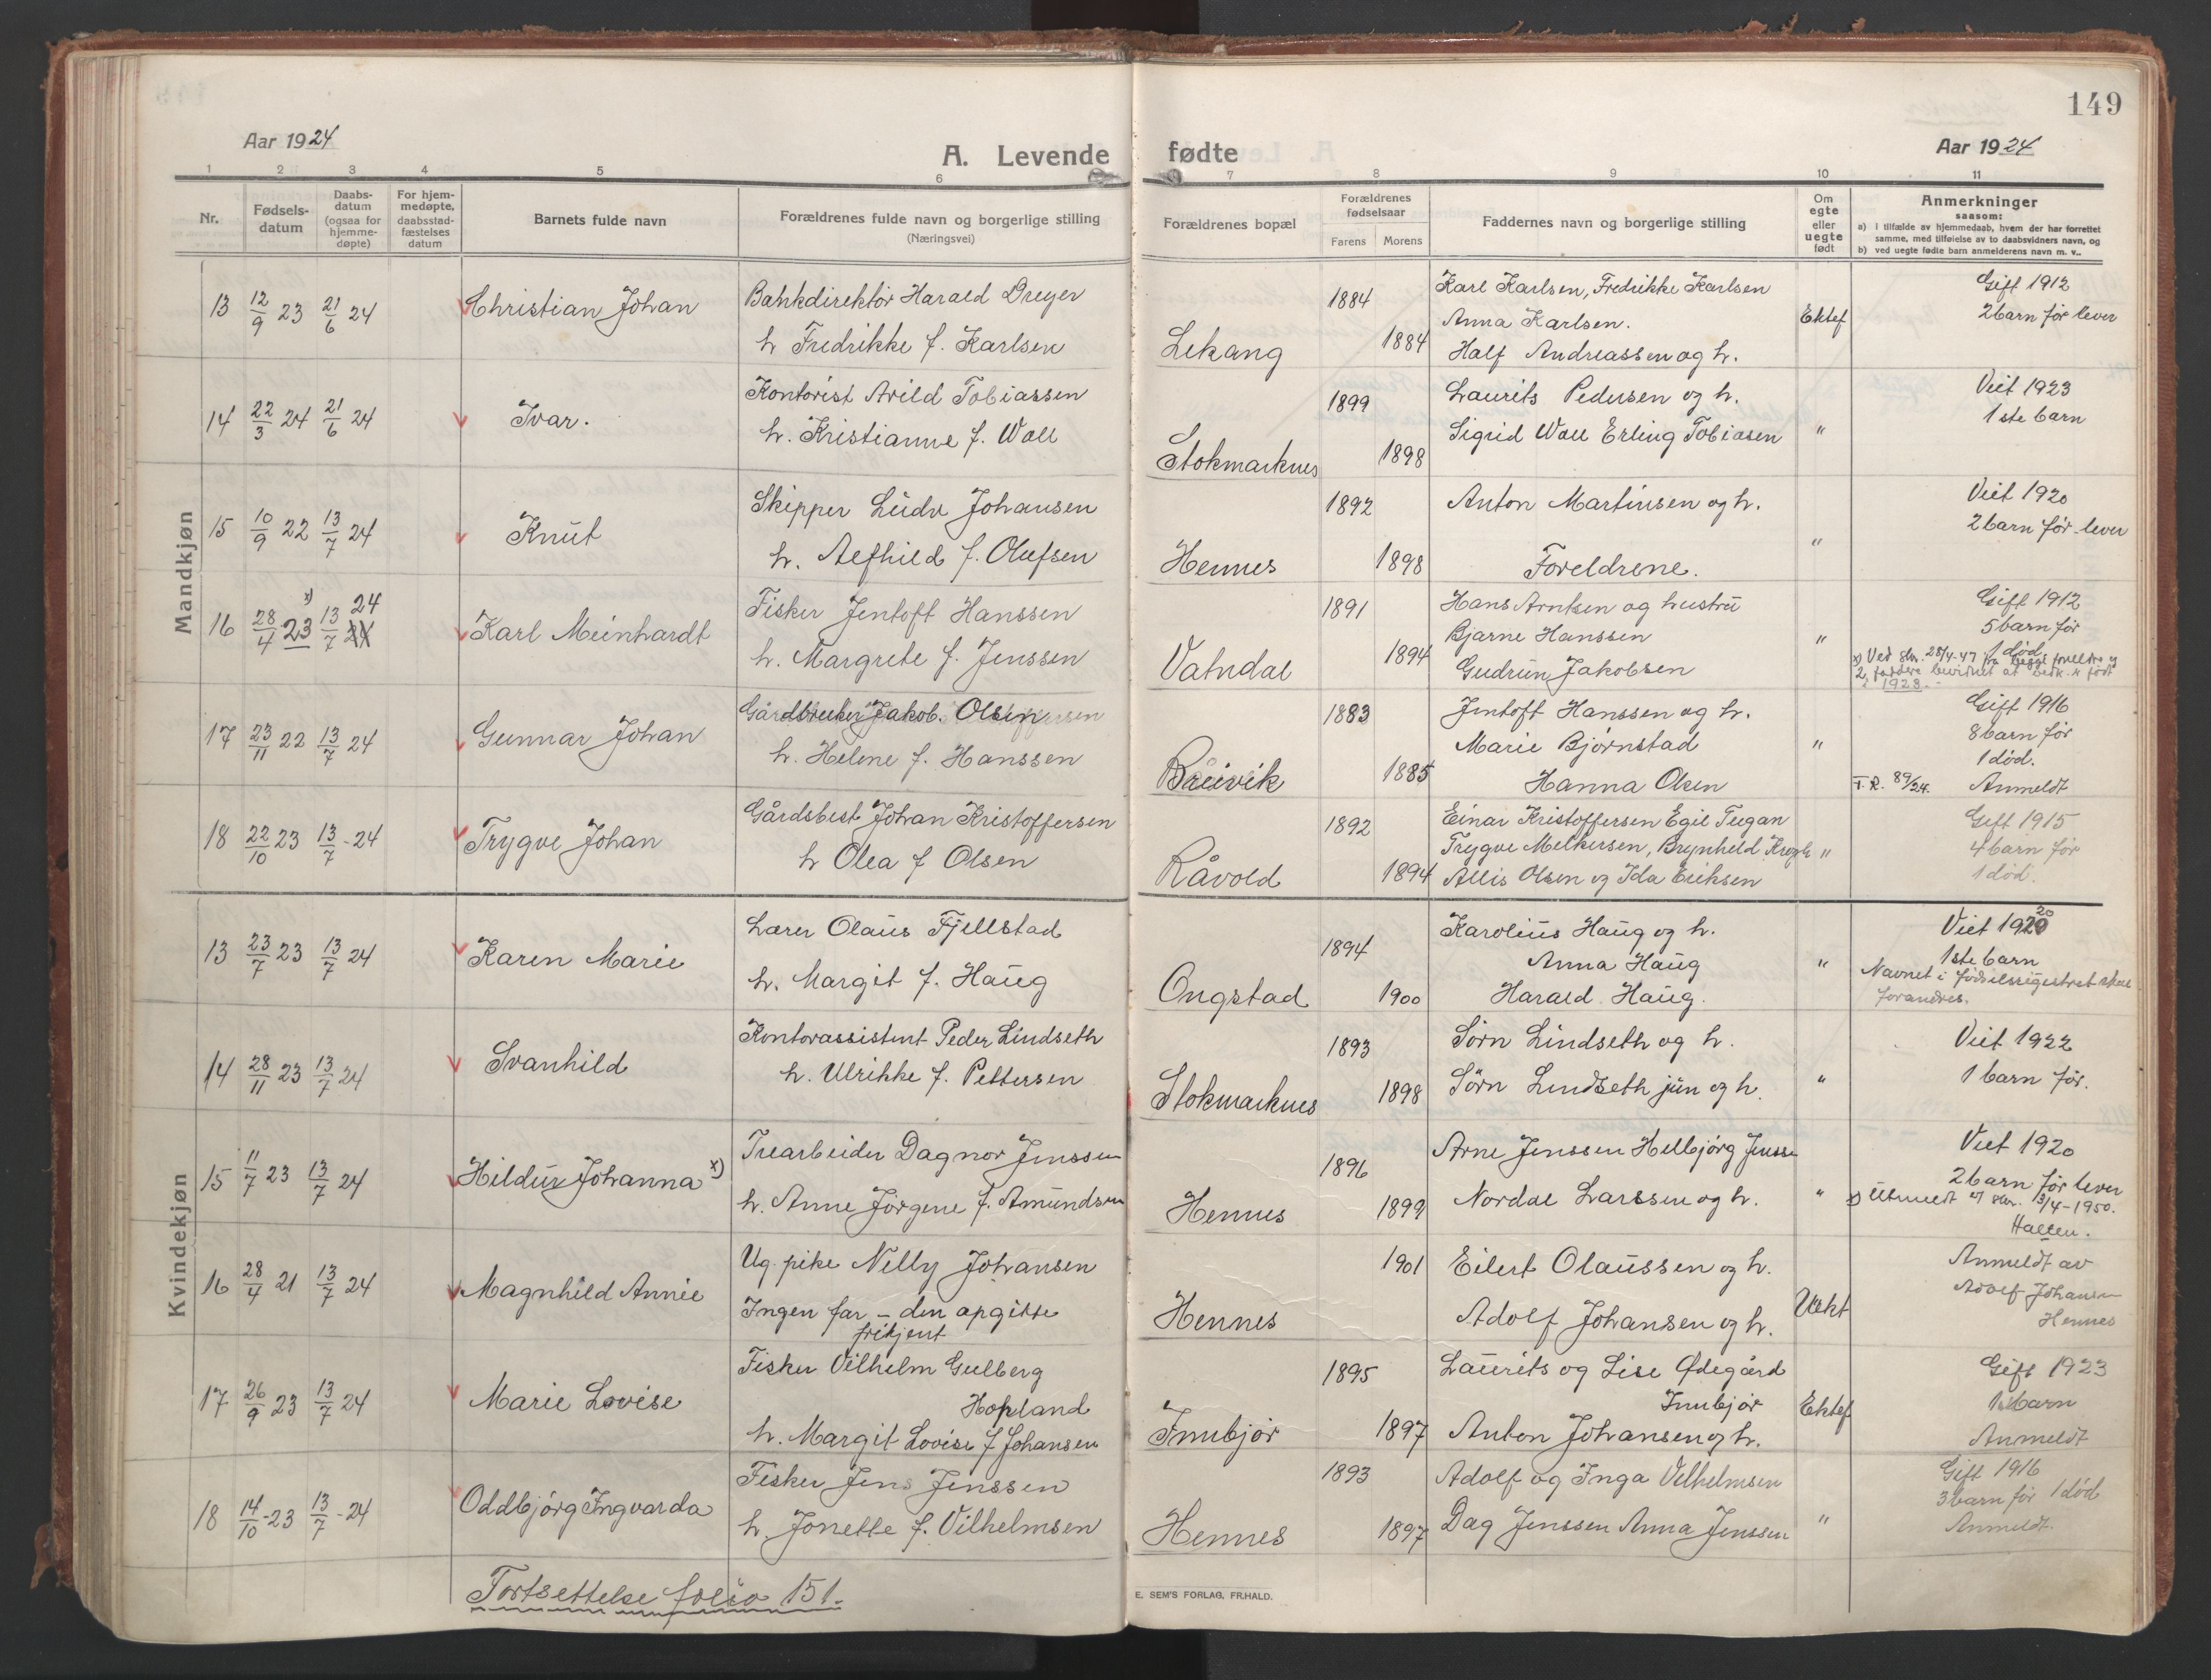 149
Aar 1924
A. Levende fødte
Aar 1924
1 2 3 4 5 6 7 8 9 10 11
Nr.
Fødsels-
datum
Daabs-
datum
(ogsaa for
hjemme-
døpte)
For hjem-
medøpte,
daabsstad-
fæstelses
datum
Barnets fulde navn
Forældrenes fulde navn og borgerlige stilling
(Næringsvei)
Forældrenes bopæl
Forældrenes
fødselsaar
Farens Morens
Faddernes navn og borgerlige stilling
Om
egte
eller
uegte
født
Anmerkninger
saasom:
a) i tilfælde av hjemmedaab, hvem der har forrettet
samme, med tilføielse av to daabsvidners navn, og
b) ved uegte fødte barn anmelderens navn m. v..
Mandkjøn
13 12/9 23 21/6 24 Christian Johan
Bankdirektör Harald Dreyer
h. Fredrikke f. Karlsen
Lekang
1884
1884
Karl Karlsen, Fredrikke Karlsen
Anna Karlsen.
Half Andreassen og h.
Ektef
Gift 1912
2 barn før lever
14 22/3 24 21/6 24 Ivar.
Kontorist Arild Tobiassen
h. Kristianne f. Woll
Stokmarknes
1899
1898
Laurits Pedersen og h.
Sigrid Woll Erling Tobiasen
"
Viet 1923
1ste barn
15 10/9 22 13/7 24 Knut
Skipper Ludv Johansen
h. Alfhild f. Olufsen
Hennes
1892
1898
Anton Martinsen og h.
Foreldrene.
"
Viet 1920
2 barn før lever
16 28/4 23 x) 13/7 24 24 Karl Meinhardt
Fisker Jentoft Hanssen
h. Margrete f. Jenssen
Vatndal
1891
1894
Hans Arntsen og hustru
Bjarne Hanssen
Gudrun Jakobsen
"
Gift 1912
5 barn før
1 død
x) Ved skr. 28/4-47 fra begge foreldre og
2 faddere bevidnet at vedk. er født
i 1923.
17 23/11 22 13/7 24 Gunnar Johan
Gårdbruker Jakob Olsen
h. Helene f. Hanssen
Breivik
1883
1885
Jentoft Hanssen og h.
Marie Bjørnstad
Hanna Olsen
"
Gift 1916
8 barn før
1 død.
T.R. 89/24. Anmeldt
18 22/10 23 13/7-24 Trygve Johan
Gårdsbest Johan Kristoffersen
h Olea f Olsen
Råvold
1892
1894
Einar Kristoffersen Egil Tugan
Trygve Melkersen, Brynhild
Allis Olsen og Ida Eriksen
"
Gift 1915
4 barn før
1 død.
Kvindekjøn
13 23/7 23 13/7 24 Karen Marie
Lærer Olaus Fjellstad
h. Margit f. Haug
Ongstad
1894
1900
Karolius Haug og h.
Anna Haug
Harald Haug.
"
Viet 1920
1ste barn
Navnet i fødselsregistret skal
forandres.
14 28/11 23 13/7 24 Svanhild
Kontorassistent Peder Lindseth
h. Ulrikke f. Pettersen
Stokmarknes
1893
1898
Sørn Lindseth og h.
Sørn Lindseth jun og h.
"
Viet 1922
1 barn før.
15 11/7 23 13/7 24 Hildur Johanna x)
Trearbeider Dagnor Jenssen
h. Anne Jørgene f. Amundsen
Hennes
1896
1899
Arne Jenssen Helbjørg Jensse
Nordal Larssen og h.
"
Viet 1920
2 barn før lever
x) Utmeldt skr. 13/4-1950.
Halten.
16 28/4 21 13/7 24 Magnhild Annie
Ug. pike Nelly Johansen
Ingen far - den opgitte
frikjent
Hennes
1901
Eilert Olaussen og h.
Adolf Johansen og h.
Uekt
Anmeldt av
Adolf Johansen
Hennes
17 26/9 23 13/7 24 Marie Lovise
Fisker Vilhelm Gulberg
Hopland
h. Margit Lovise f Johansen
Innbjør
1895
1897
Laurits og Lise Ødegård
Innbjør
Anton Johansen og h.
Ektef
Gift 1923
1 barn
Anmeldt
18 14/10-23 13/7-24 Oddbjørg Ingvarda
Fisker Jens Jenssen
h. Jonette f. Vilhelmsen
Hennes
1893
1897
Adolf og Inga Vilhelmsen
Dag Jenssen Anna Jenssen
"
Gift 1916
3 barn før 1 død
Anmeldt.
Fortsettelse folio 151.
E. SEM'S FORLAG, FR.HALD.